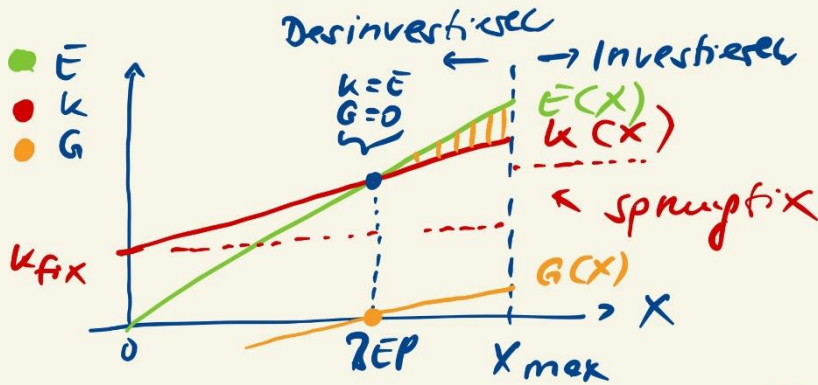 Desinvestieren
← → Investieren
E
K
G
K=E
G=0
E(X)
K(X)
← sprungfix
Kfix
G(X)
X
0
BEP
Xmax